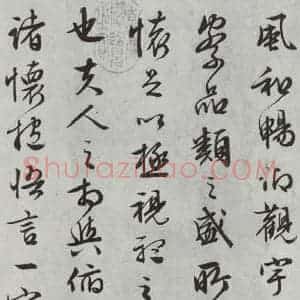 風和暢仰觀宇
察品類之盛所
懷足以極視聽之
也夫人之相與俯
諸懷抱悟言一室
Shufazidao.COM